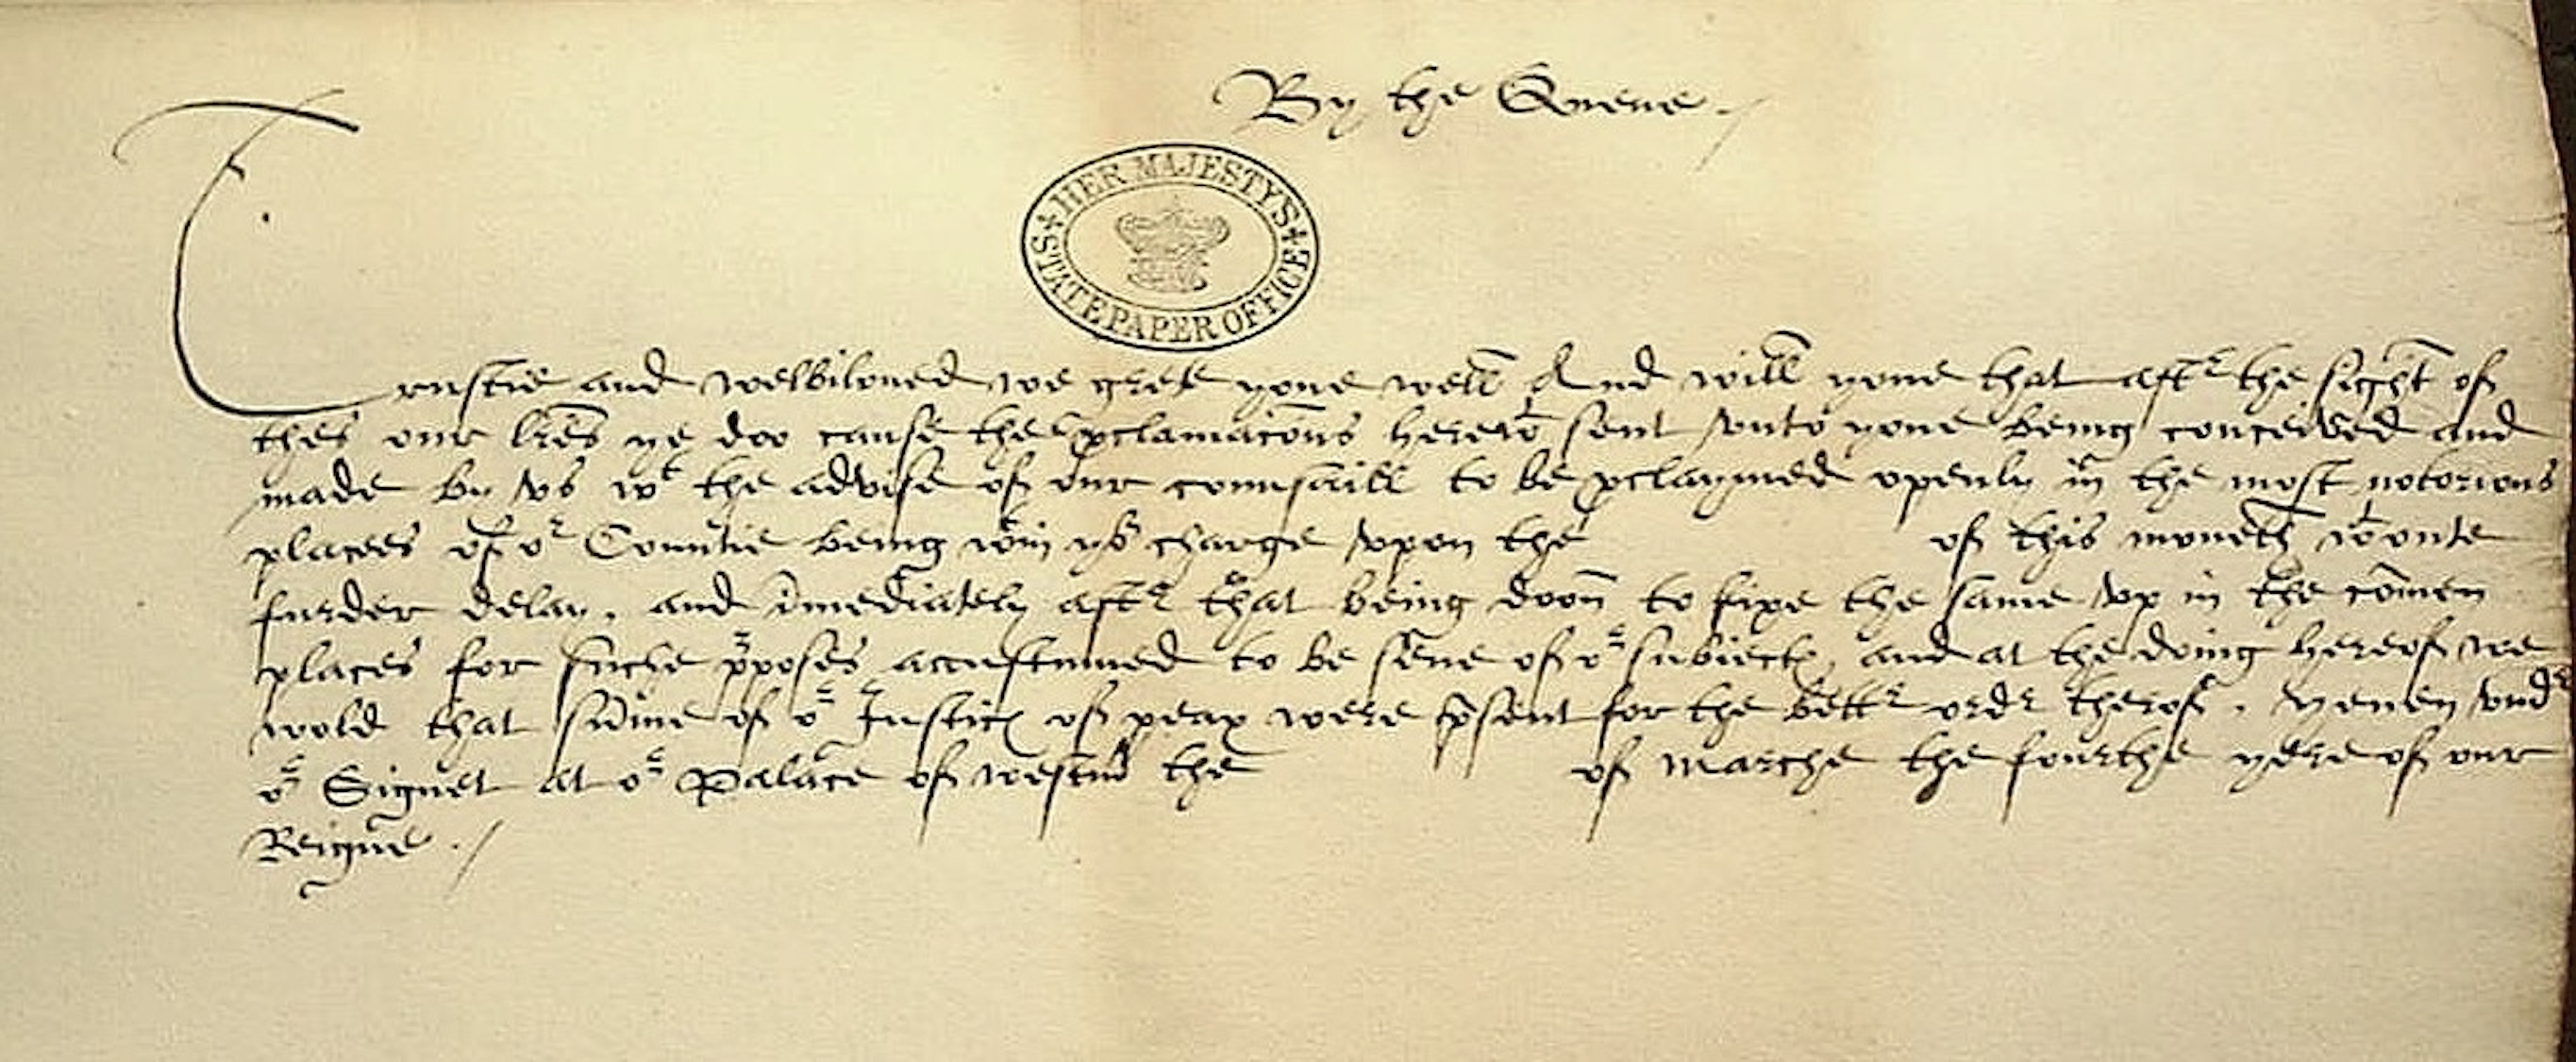 By the Quene ./
HER MAJESTY'S
STATE PAPER OFFICE
Trustie and welbiloued we grete youe well And will youe that aftr the sight of
thes our lres ye doo cause the pclamacons herewt sent vnto youe being conceived and
made by vs wt the advise of our counsaill to be pclaymed openly in the most notorious
places of or Countie being wtin yor charge vpon the of this moneth wtoute
furder delay, and imediately aftr that being doon to fixe the same vp in the comen
places for suche pposes accustumed to be sene of or subiectes, and at the doing hereof we
wold that sume of or Justices of peax were psent for the bettr ordr therof. Yeven vndr
or Signet at or Palace of westm the of Marche the fourthe yere of our
Reigne ./